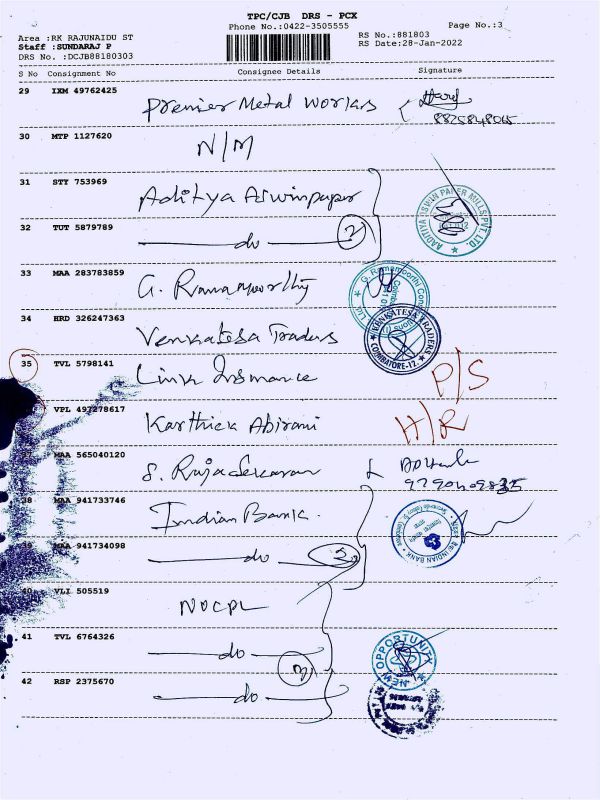 TPC/CJB DRS - PCX
Phone No.:0422-3505555
Page No.:3
Area :RK RAJUNAIDU ST
RS No.:881803
Staff :SUNDARAJ P
RS Date:28-Jan-2022
DRS No. :DCJB88180303
S No Consignment No Consignee Details Signature
29 IXM 49762425
Premier Metal Workers
30 MTP 1127620
N/M
31 STY 753969
Aditya Aswinpaper
AADITIYA ASWIN PAPER MILLS PVT. LTD.
32 TUT 5879789
do 2
33 MAA 283783859
G. Ramamoorthy
34 HRD 326247363
Venkatesa Traders
VENKATESA TRADERS
COIMBATORE-12.
35 TVL 5798141
Link Insurance P/S
VPL 497278617
Karthick Abirami H/R
MAA 565040120
S. Rajasekaran
38 MAA 941733746
Indian Bank
INDIAN BANK
39 MAA 941734098
do
40 VLI 505519
NOCPL
41 TVL 6764326
do
NEW OPPORTUNITY
42 RSP 2375670
do